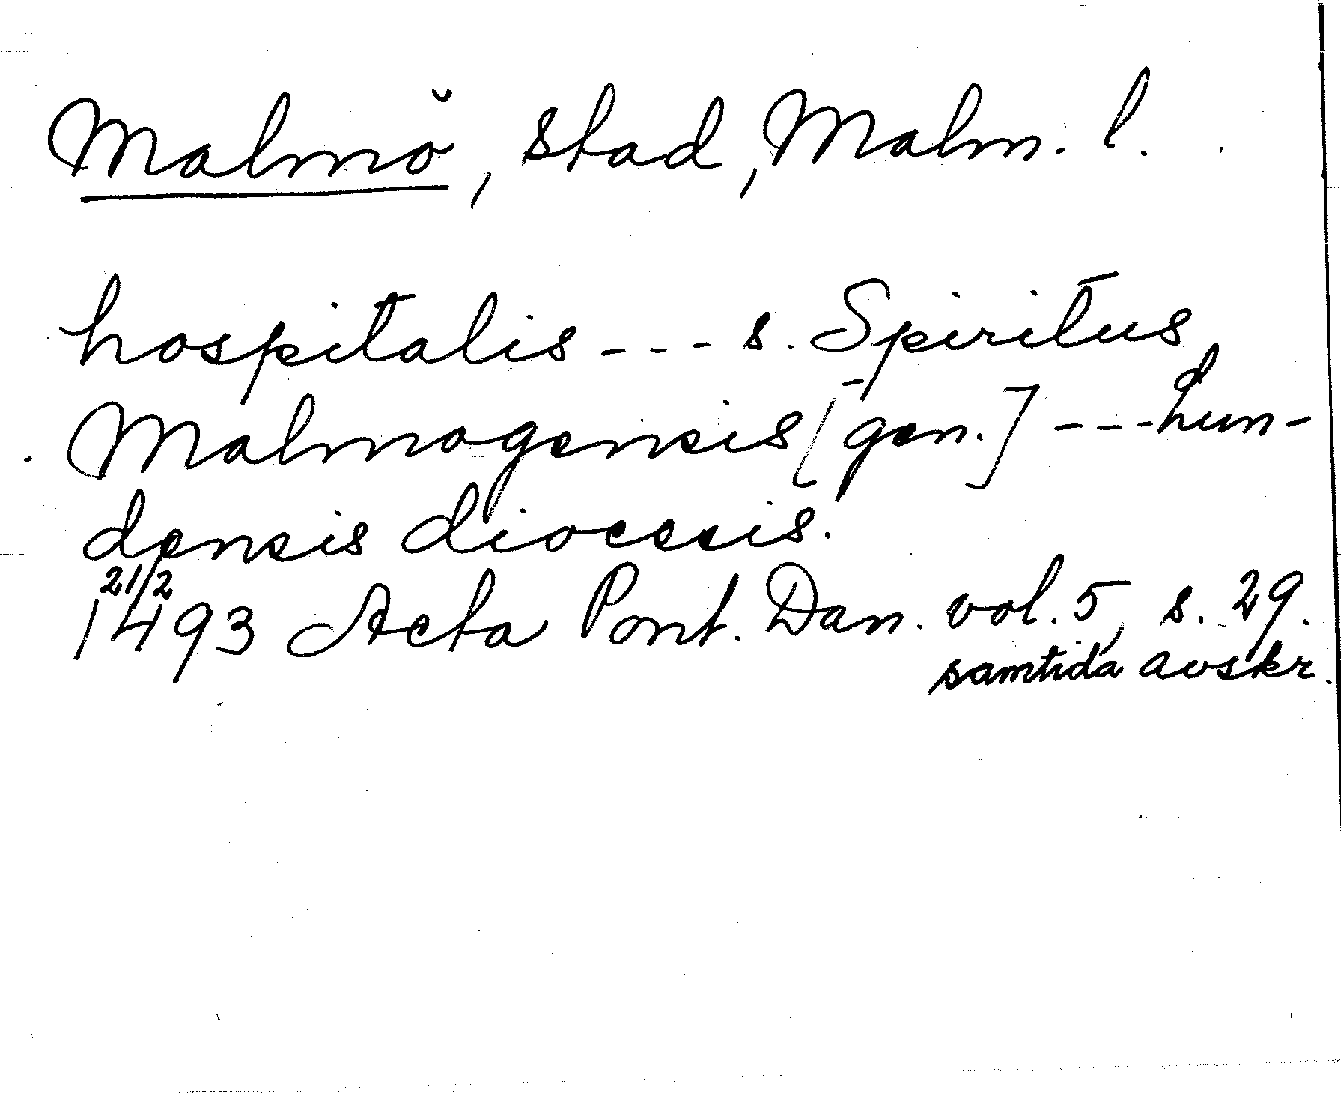 Malmö, stad, Malm. l.
hospitalis --- s. Spiritus
Malmogensis [gen.] --- Lun-
densis diocesis.
21/2
1493 Acta Pont. Dan. vol. 5, s. 29.
samtida avskr.